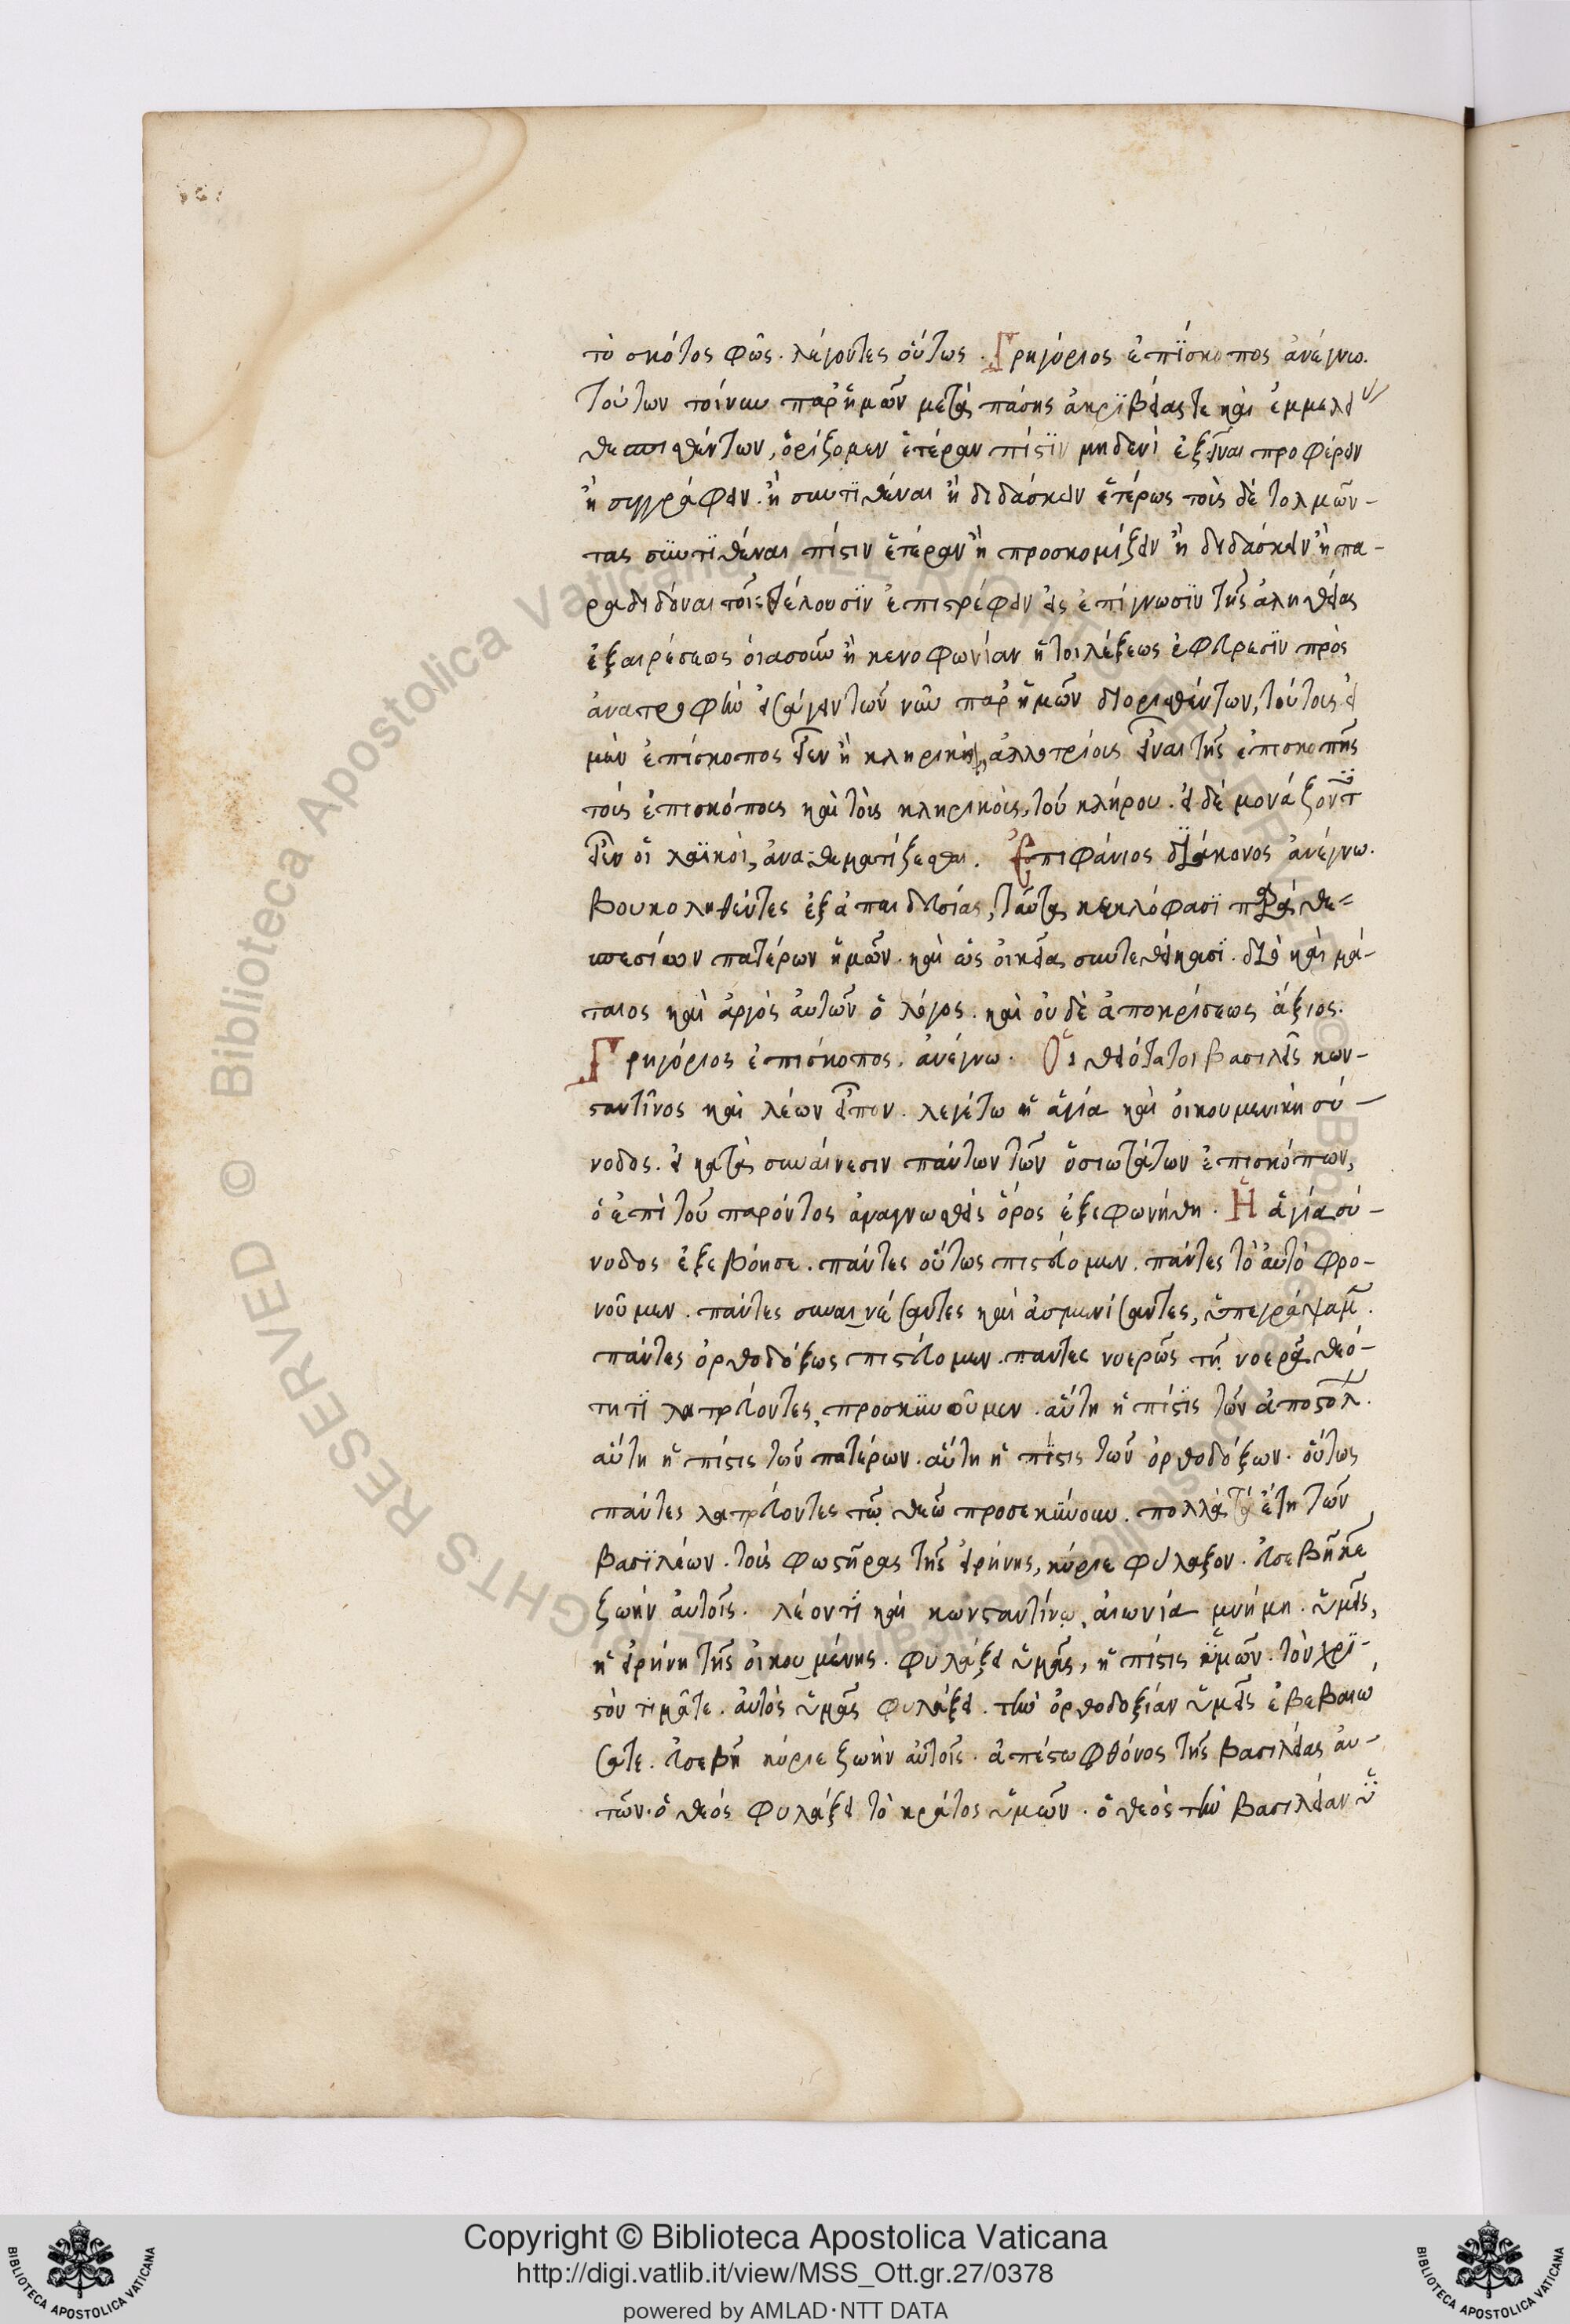 τὸ σκότος φῶς. λέγοντες οὕτως. Γρηγόριος ἐπίσκοπος ἀνέγνω.
Τούτων τοίνυν παρ' ἡμῶν μετὰ πάσης ἀκριβείας τε καὶ ἐμμελεί
θεσπισθέντων, ὁρίζομεν ἑτέραν πίστιν μηδενὶ ἐξεῖναι προφέρειν
ἢ συγγράφειν. ἢ συντιθέναι ἢ διδάσκειν ἑτέρως τοὺς δὲ τολμῶν-
τας συντιθέναι πίστιν ἑτέραν ἢ προσκομίζειν ἢ διδάσκειν ἢ πα-
ραδιδόναι τοῖς θέλουσιν ἐπιστρέφειν εἰς ἐπίγνωσιν τῆς ἀληθείας
ἐξ αἱρέσεως οἱασοῦν ἢ κενοφωνίαν ἤτοι λέξεως ἐφεύρεσιν πρὸς
ἀνατροφὴν εἰσάγειν τῶν νῦν παρ' ἡμῶν διορισθέντων, τούτοις εἰ
μὲν ἐπίσκοπος εἶεν ἢ κληρικοὶ, ἀλλοτρίους εἶναι τῆς ἐπισκοπῆς
τοὺς ἐπισκόπους καὶ τοὺς κληρικοὺς, τοῦ κλήρου. εἰ δὲ μονάζοντ
εἶεν οἱ λαϊκοὶ, ἀναθεματίζεσθαι. Ἐπιφάνιος διάκονος ἀνέγνω.
Βουκοληθέντες ἐξ ἀπαιδευσίας, ταῦτα κεκλόφασι παρὰ θε=
σπεσίων πατέρων ἡμῶν. καὶ ὡς οἰκείας συντεθείκασι. διὸ καὶ μά-
ταιος καὶ ἀργὸς αὐτῶν ὁ λόγος. καὶ οὐδὲ ἀποκρίσεως ἄξιος.
Γρηγόριος ἐπίσκοπος. ἀνέγνω. Οἱ θειότατοι βασιλεῖς κων-
σταντῖνος καὶ λέων εἶπον. λεγέτω ἡ ἁγία καὶ οἰκουμενικὴ σύ-
νοδος. εἰ κατὰ συναίνεσιν πάντων τῶν ὁσιωτάτων ἐπισκόπων,
ὁ ἐπὶ τοῦ παρόντος ἀναγνωσθεὶς ὅρος ἐξεφωνήθη. Ἡ ἁγία σύ-
νοδος ἐξεβόησε. πάντες οὕτως πιστεύομεν. πάντες τὸ αὐτὸ φρο-
νοῦμεν. πάντες συναινέσαντες καὶ ἀσμενίσαντες, ὑπεγράψαμ.
πάντες ὀρθοδόξως πιστεύομεν. παντες νοερῶς τῇ νοερᾷ θεό-
τητι λατρεύοντες, προσκυνοῦμεν. αὕτη ἡ πίστις τῶν ἀποστόλ.
αὕτη ἡ πίστις τῶν πατέρων. αὕτη ἡ πίστις τῶν ὀρθοδόξων. οὕτως
πάντες λατρεύοντες τῷ θεῷ προσεκύνουν. πολλὰ τὰ ἔτη τῶν
βασιλέων. τοὺς φωστῆρας τῆς εἰρήνης, κύριε φύλαξον. εὐσεβῆ κε
ζωὴν αὐτοῖς. λέοντι καὶ κωνσταντίνῳ, αἰωνία μνήμη. ὑμεῖς,
ἡ εἰρήνη τῆς οἰκουμένης. φυλάξει ὑμᾶς, ἡ πίστις ὑμῶν. τὸν χρι-
στὸν τιμᾶτε. αὐτὸς ὑμᾶς φυλάξει. τὴν ὀρθοδοξίαν ὑμεῖς ἐβεβαιώ
σατε. εὐσεβῆ κύριε ζωὴν αὐτοῖς. ἀπέστω φθόνος τῆς βασιλείας αὐ-
τῶν. ὁ θεὸς φυλάξει τὸ κράτος ὑμῶν. ὁ θεὸς τὴν βασιλείαν ὑ
Copyright © Biblioteca Apostolica Vaticana
http://digi.vatlib.it/view/MSS_Ott.gr.27/0378
powered by AMLAD·NTT DATA